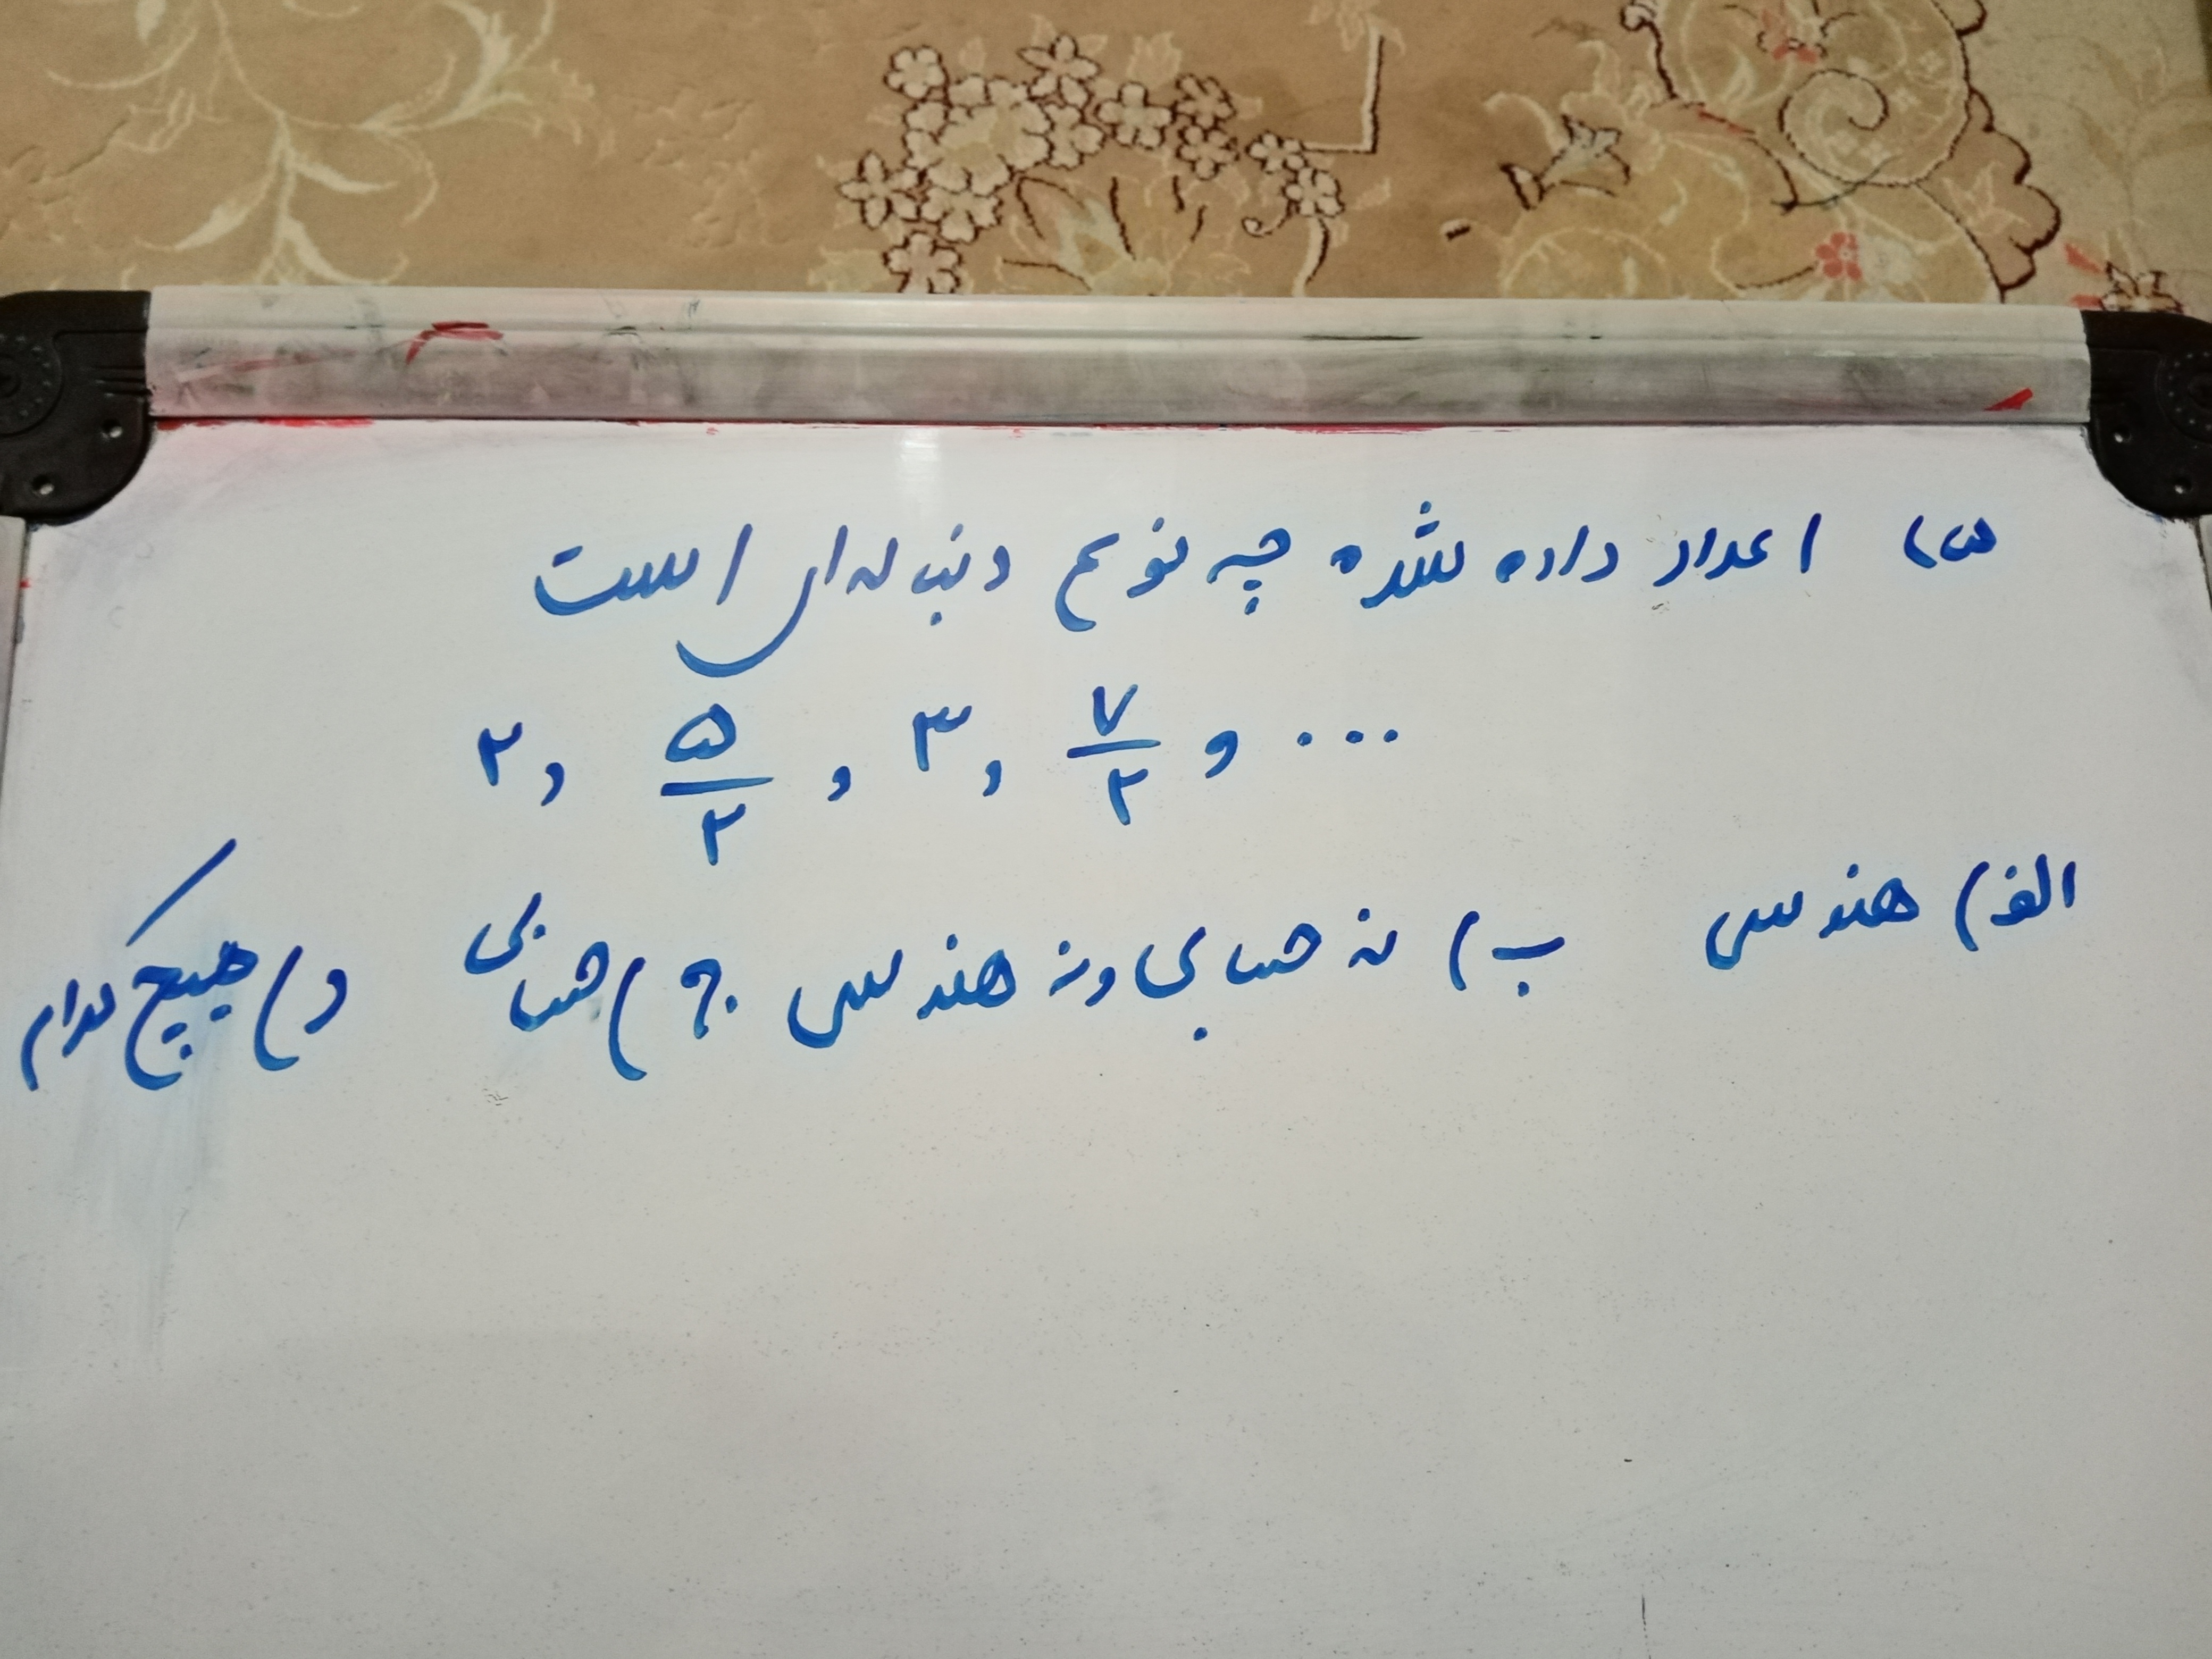 ۵) اعداد داده شده چه نوع دنباله‌ای است
۲, ۵/۲, ۳, ۷/۲, ...
الف) هندسی ب) نه حسابی و نه هندسی ج) حسابی د) هیچکدام